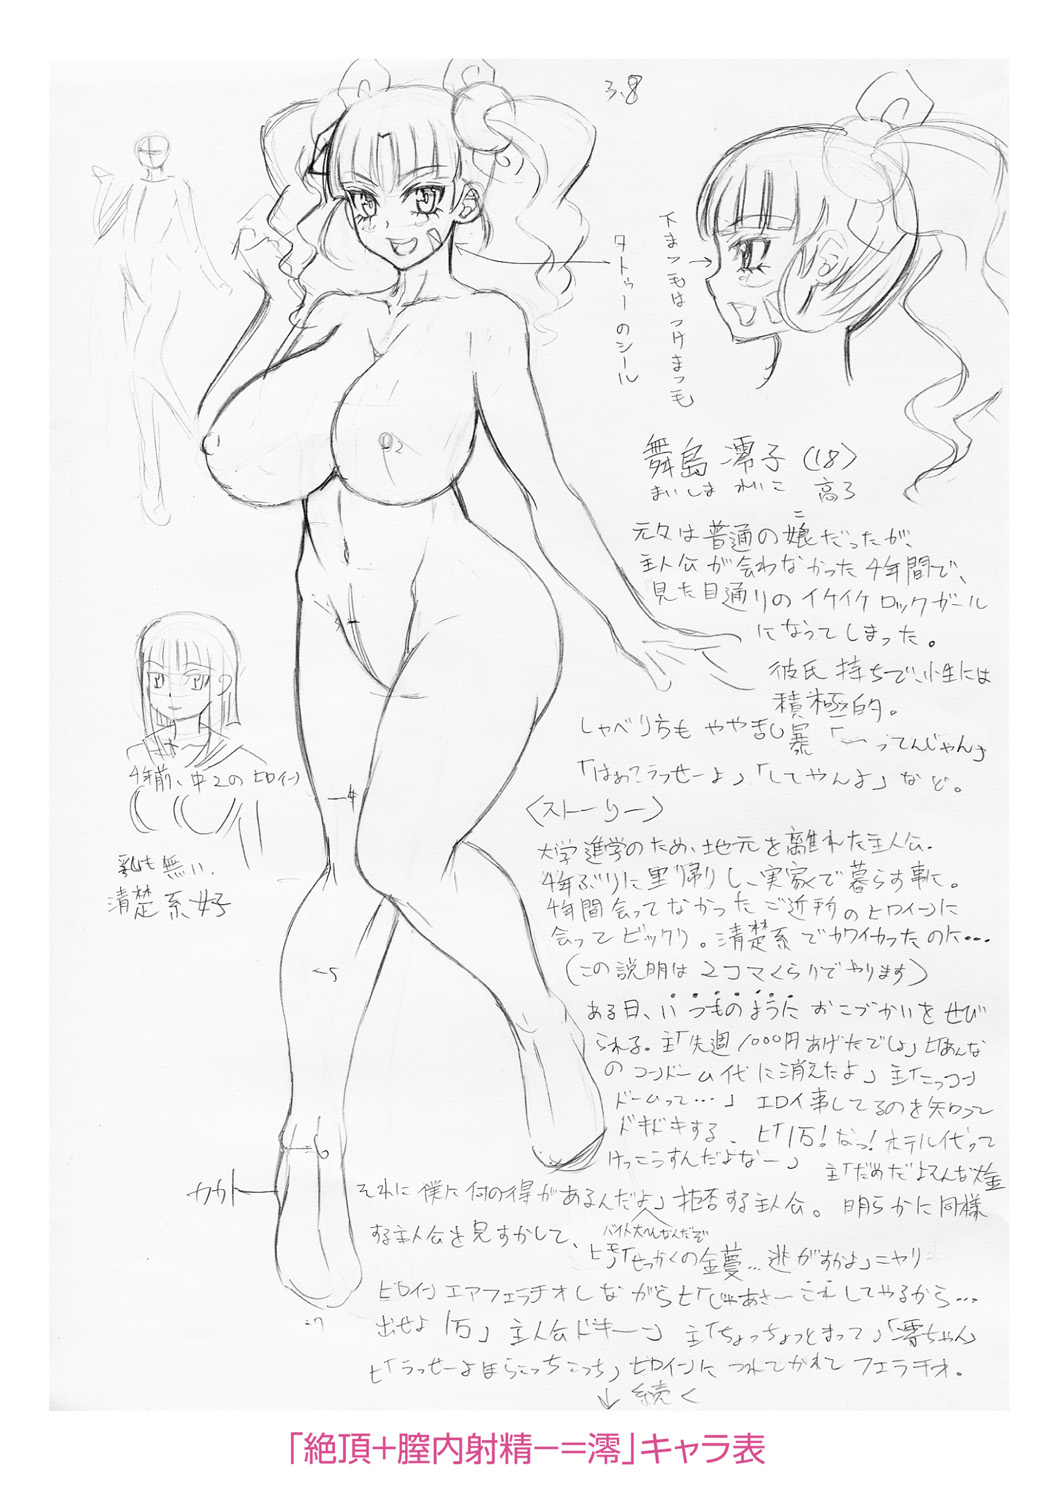 3.8
タトゥーのシール
下まつ毛はつけまつ毛
舞島 澪子(18)
まいしま れいこ 高3
元々は普通の娘だったが、
主人公が会わなかった4年間で、
見た目通りのイケイケロックガール
になってしまった。
彼氏持ちで、小生には
積極的。
しゃべり方もやや乱暴「〜ってんじゃん」
「はぁ?うっせーよ」「してやんよ」など。
<ストーリー>
大学進学のため、地元を離れた主人公。
4年ぶりに里帰りし、実家で暮らす事に。
4年間会ってなかったご近所のヒロインに
会ってビックリ。清楚系でカワイかったのに…
(この説明は2コマくらいでやります)
ある日、いつものようにおこづかいをせび
られる。主「先週1000円あげたでしょ」ヒ「あんな
のコンドーム代に消えたよ」主「こっコン
ドームって…」エロイ事してるのを知って
ドキドキする、ヒ「1万!なっ!ホテル代って
けっこうすんだよなー」
主「だめだよそんな大金
それに僕に何の得があるんだよ」拒否する主人公。明らかに同様
する主人公を見すかして、
バイト大へんなんだぞ
「せっかくの金蔓…逃がすかよ」ニヤリ
ヒロインエアフェラチオしながらヒ「じゃあさーこれしてやるから…
出せよ1万」主人公ドキーン 主「ちょっちょっとまって」「澪ちゃん」
ヒ「うっせーよほらこっちこっち」ヒロインにつれてかれてフェラチオ。
↓続く
「絶頂+膣内射精−=澪」キャラ表